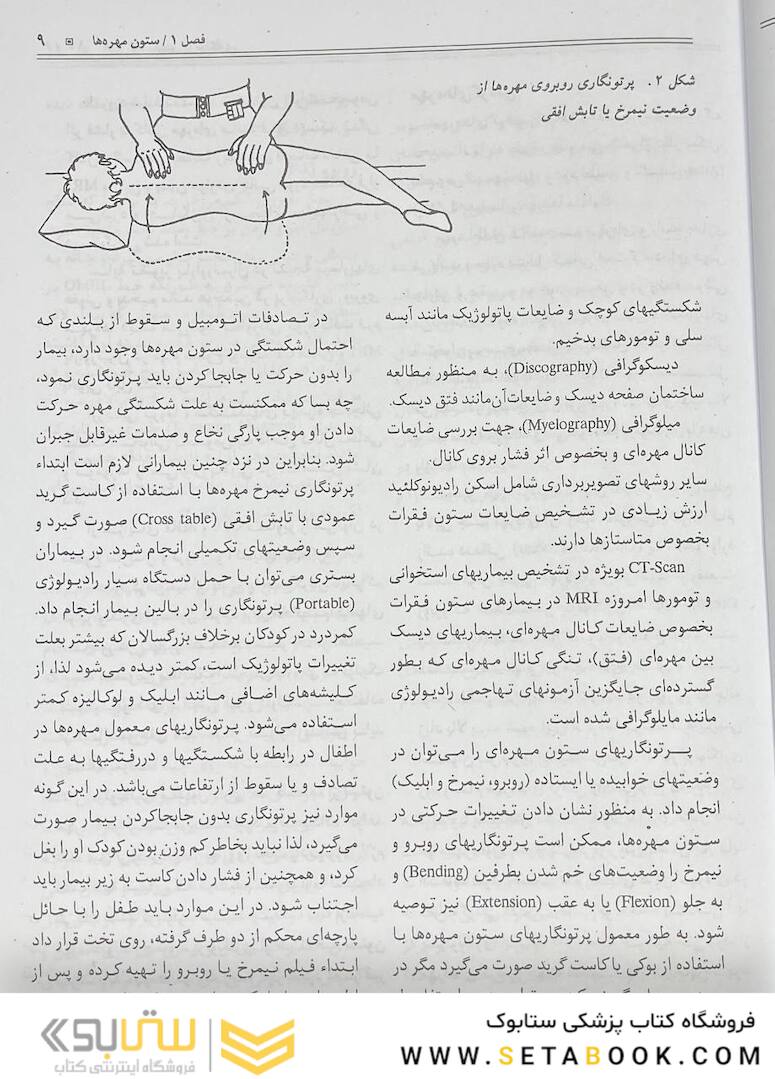 فصل ۱ / ستون مهره‌ها ۹
شکل ۲. پرتونگاری روبروی مهره‌ها از
وضعیت نیمرخ یا تابش افقی
شکستگیهای کوچک و ضایعات پاتولوژیک مانند آبسه
سلی و تومورهای بدخیم.
دیسکوگرافی (Discography)، به منظور مطالعه
ساختمان صفحه دیسک و ضایعات آن مانند فتق دیسک.
میلوگرافی (Myelography)، جهت بررسی ضایعات
کانال مهره‌ای و بخصوص اثر فشار بروی کانال.
سایر روشهای تصویربرداری شامل اسکن رادیونوکلئید
ارزش زیادی در تشخیص ضایعات ستون فقرات
بخصوص متاستازها دارند.
CT-Scan بویژه در تشخیص بیماریهای استخوانی
و تومورها امروزه MRI در بیمارهای ستون فقرات
بخصوص ضایعات کانال مهره‌ای، بیماریهای دیسک
بین مهره‌ای (فتق)، تنگی کانال مهره‌ای که بطور
گسترده‌ای جایگزین آزمونهای تهاجمی رادیولوژی
مانند مایلوگرافی شده است.
پرتونگاریهای ستون مهره‌ای را می‌توان در
وضعیتهای خوابیده یا ایستاده (روبرو، نیمرخ و ابلیک)
انجام داد. به منظور نشان دادن تغییرات حرکتی در
ستون مهره‌ها، ممکن است پرتونگاریهای روبرو و
نیمرخ را وضعیت‌های خم شدن بطرفین (Bending) و
به جلو (Flexion) یا به عقب (Extension) نیز توصیه
شود. به طور معمول پرتونگاریهای ستون مهره‌ها با
استفاده از بوکی یا کاست گرید صورت می‌گیرد مگر در
در تصادفات اتومبیل و سقوط از بلندی که
احتمال شکستگی در ستون مهره‌ها وجود دارد، بیمار
را بدون حرکت یا جابجا کردن باید پرتونگاری نمود،
چه بسا که ممکنست به علت شکستگی مهره حرکت
دادن او موجب پارگی نخاع و صدمات غیرقابل جبران
شود. بنابراین در نزد چنین بیمارانی لازم است ابتداء
پرتونگاری نیمرخ مهره‌ها با استفاده از کاست گرید
عمودی با تابش افقی (Cross table) صورت گیرد و
سپس وضعیتهای تکمیلی انجام شود. در بیماران
بستری می‌توان با حمل دستگاه سیار رادیولوژی
(Portable) پرتونگاری را در بالین بیمار انجام داد.
کمردرد در کودکان برخلاف بزرگسالان که بیشتر بعلت
تغییرات پاتولوژیک است، کمتر دیده می‌شود لذا، از
کلیشه‌های اضافی مانند ابلیک و لوکالیزه کمتر
استفاده می‌شود. پرتونگاریهای معمول مهره‌ها در
اطفال در رابطه با شکستگیها و دررفتگیها به علت
تصادف و یا سقوط از ارتفاعات می‌باشد. در این گونه
موارد نیز پرتونگاری بدون جابجاکردن بیمار صورت
می‌گیرد، لذا نباید بخاطر کم وزن بودن کودک او را بغل
کرد، و همچنین از فشار دادن کاست به زیر بیمار باید
اجتناب شود. در این موارد باید طفل را با حائل
پارچه‌ای محکم از دو طرف گرفته، روی تخت قرار داد
ابتداء فیلم نیمرخ یا روبرو را تهیه کرده و پس از
فروشگاه کتاب پزشکی ستابوک
WWW.SETABOOK.COM
ستابوک
فروشگاه اینترنتی کتاب